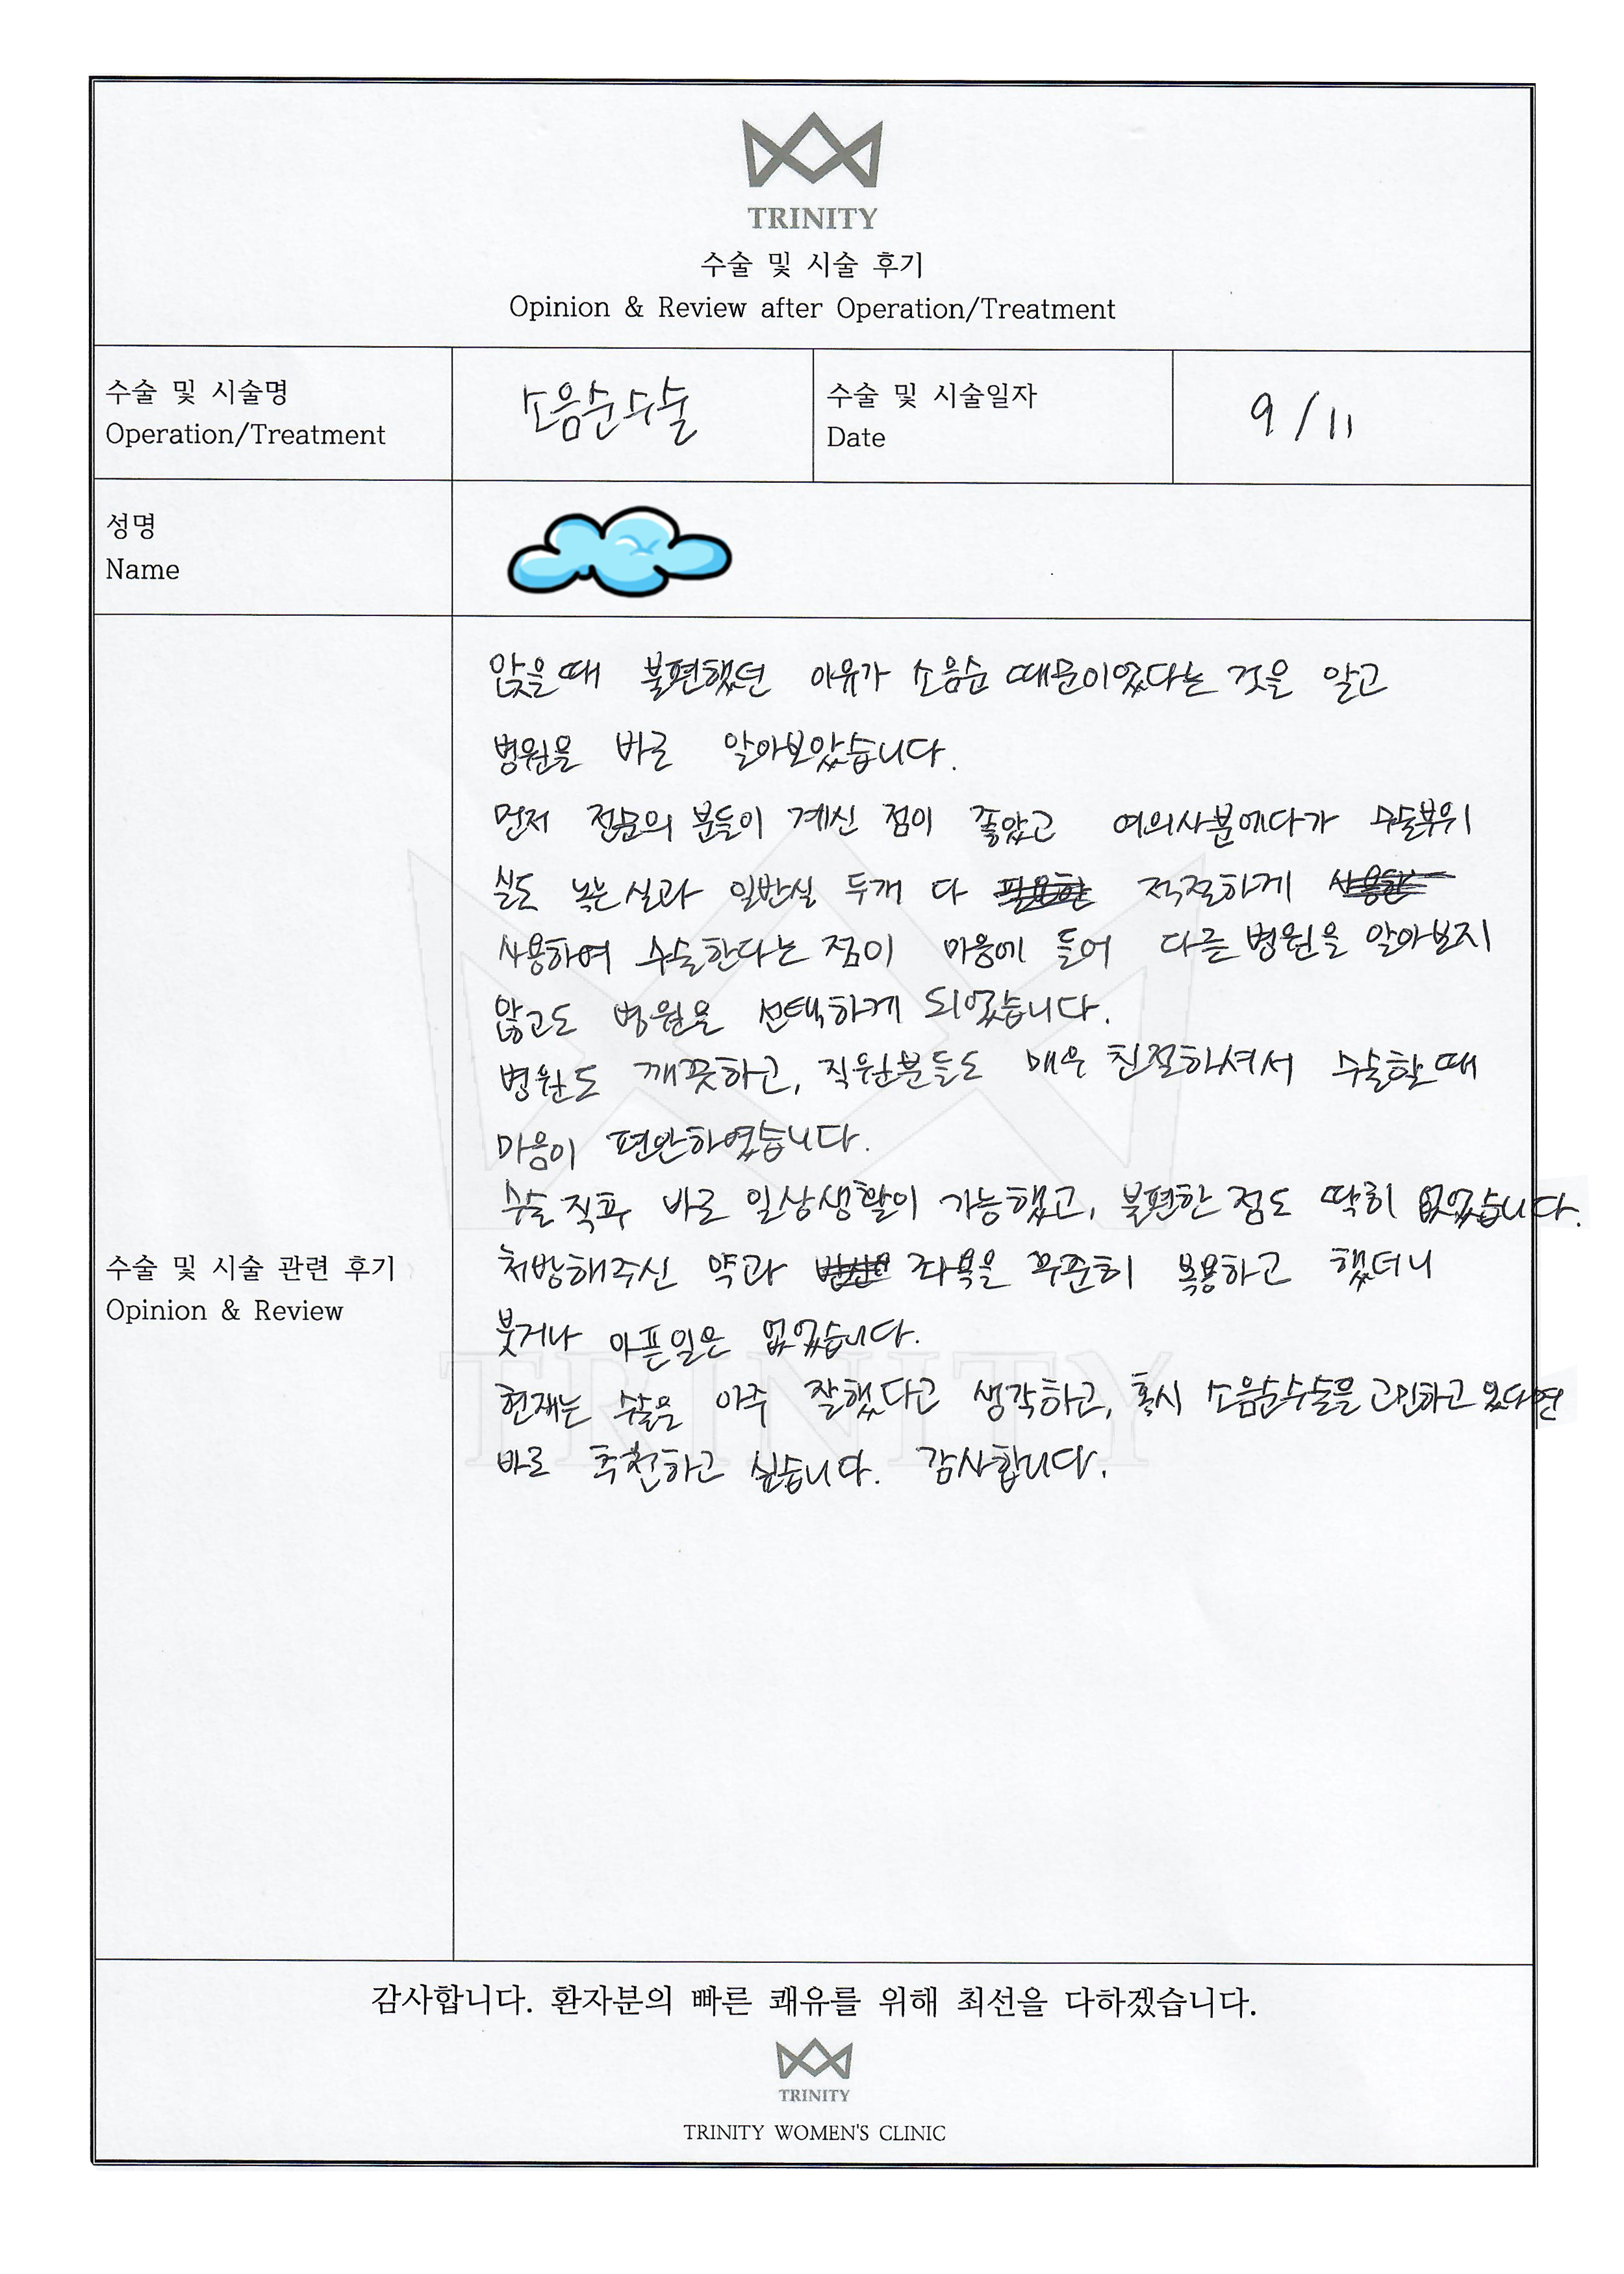 TRINITY
수술 및 시술 후기
Opinion & Review after Operation/Treatment
수술 및 시술명
Operation/Treatment
소음순수술
수술 및 시술일자
Date
9/11
성명
Name
앉을때 불편했던 이유가 소음순 때문이었다는 것을 알고
병원을 바로 알아보았습니다.
먼저 전문의 분들이 계신 점이 좋았고 여의사분에다가 수술부위
실도 녹는실과 일반실 두개 다 적절하게
사용하여 수술한다는 점이 마음에 들어 다른 병원을 알아보지
않고도 병원을 선택하게 되었습니다.
병원도 깨끗하고, 직원분들도 매우 친절하셔서 수술할때
마음이 편안하였습니다.
수술 직후 바로 일상생활이 가능했고, 불편한 점도 딱히 없었습니다.
처방해주신 약과 좌욕을 꾸준히 복용하고 했더니
붓거나 아픈일은 없었습니다.
현재는 수술을 아주 잘했다고 생각하고, 혹시 소음순수술을 고민하고 있다면
바로 추천하고 싶습니다. 감사합니다.
수술 및 시술 관련 후기
Opinion & Review
TRINITY
감사합니다. 환자분의 빠른 쾌유를 위해 최선을 다하겠습니다.
TRINITY
TRINITY WOMEN'S CLINIC